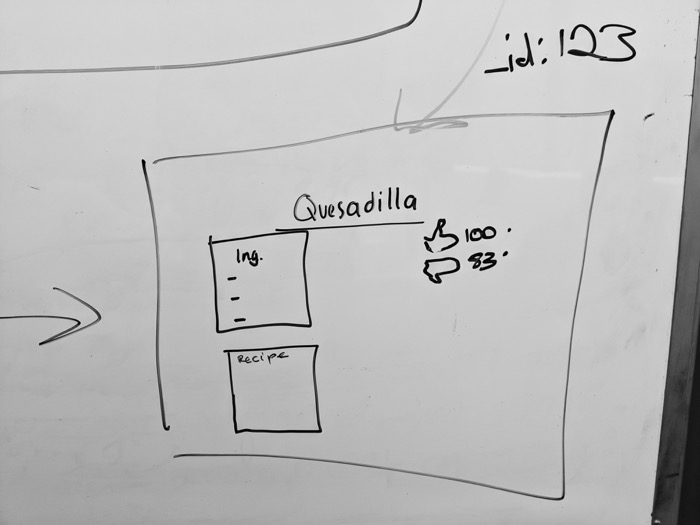 _id:123
Quesadilla
100
83
Ing.
Recipe